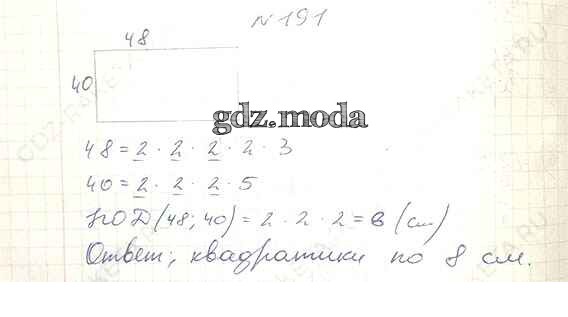 №191
48
40
gdz.moda
48 = 2 · 2 · 2 · 2 · 3
40 = 2 · 2 · 2 · 5
НОД (48; 40) = 2 · 2 · 2 = 8 (см)
Ответ; квадратики по 8 см.